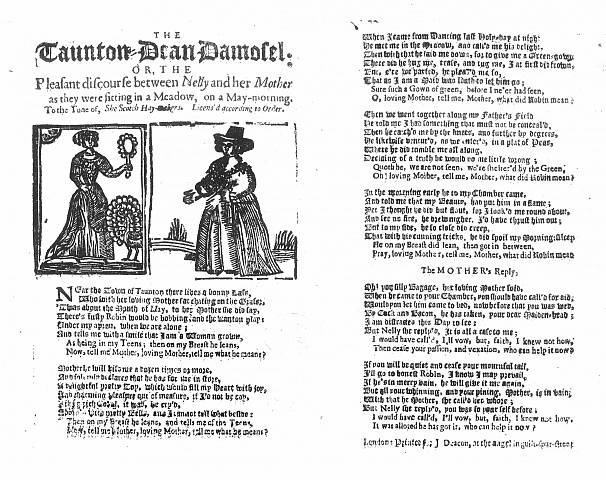 THE
Taunton-Dean Damosel:
OR, THE
Pleasant discourse between Nelly and her Mother
as they were sitting in a Meadow, on a May-morning.
To the Tune of, She Scotch Hay-makers. Licens'd according to Order.
NEar the Town of Taunton there lives a bonny Lass,
Who with her loving Mother sat chating on the Grass;
'Twas about the Month of May, to her Mother she did say,
There's lusty Robin would be bobbing, and the wanton play
Under my apron, when we are alone;
And tells me with a smile that I am a Woman grown,
As being in my Teens; then on my Breast he leans,
Now, tell me Mother, loving Mother, tell me what he means?
Mother, he will kiss me a dozen times or more,
he has for me in store,
A delightful pretty Toy, which would fill my Heart with joy,
And charming pleasures out of measure, if I'd not be coy,
it was, he cry'd,
pretty and I cannot tell what beside:
Then on my Breast he leans, and tells me of the Teens,
Now, tell me Mother, loving Mother, tell me what he means?
When I came from Dancing last Holy-day at night
He met me in the Meadow, and call'd me his delight,
Then with that he laid me down, for to give me a Green-gown,
There did he hug me, tease, and tug me, I at first did frown,
But, e're we parted, he pleas'd me so,
That as I am a Maid was loath to let him go;
Sure such a Gown of green, before I ne'er had seen,
O, loving Mother, tell me, Mother, what did Robin mean?
Then we went together along my Father's Field
He told me I had something that must not be conceal'd,
Then he catch'd me by the knees, and further by degrees,
He likewise ventur'd, as we enter'd, in a plat of Peas,
Where he did tumble me all along,
Declaring of a truth he would do me little wrong;
Quoth he, we are not seen, we're shelter'd by the Green,
Oh! loving Mother, tell me, Mother, what did Robin mean?
In the morning early he to my Chamber came,
And told me that my Beauty had put him in a flame;
Yet I thought he did but flout, for I look'd me round about,
And see no fire, he drew nigher, I'd have thrust him out;
Yet to my side, he so close did creep,
That with his cunning tricks, he did spoil my Morning-sleep
He on my Breast did lean, then got in between,
Pray, loving Mother, tell me, Mother, what did Robin mean
The MOTHER's Reply:
Oh! you silly Baggage, her loving Mother said,
When he came to your Chamber, you should have call'd for aid;
Would you let him come to bed, now before that you was wed,
By Cock and Bacon, he has taken, your dear Maiden-head;
I am distrated this Day to see:
But Nelly she reply'd, It is all a case to me;
I would have call'd, I'll vow, but, faith, I knew not how,
Then cease your passion, and vexation, who can help it now?
If you will be quiet and cease your mournful tail,
I'll go to honest Robin, I know I may prevail,
If he's in merry pain, he will give it me again,
But all your whinning, and your pining, Mother, is in vain;
With that he Mother, she call'd her whore;
But Nelly she reply'd, you was so your self before;
I would have call'd, I'll vow, but, faith, I knew not how,
It was allowed he has got it, who can help it now?
London: Printed for J Deacon, at the Angel in guilt-spur-street